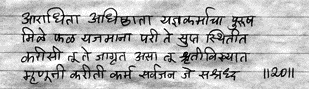 आराधिता अधिष्ठाता यज्ञकर्माचा पुरुष
मिळे फळ यजमाना परी ते सुप्त स्थितीत
करीसी तू ते जागृत असा तू श्रुतीविख्यात
म्हणूनी करीती कर्म सर्वजन जे सश्रध्द ॥२०॥